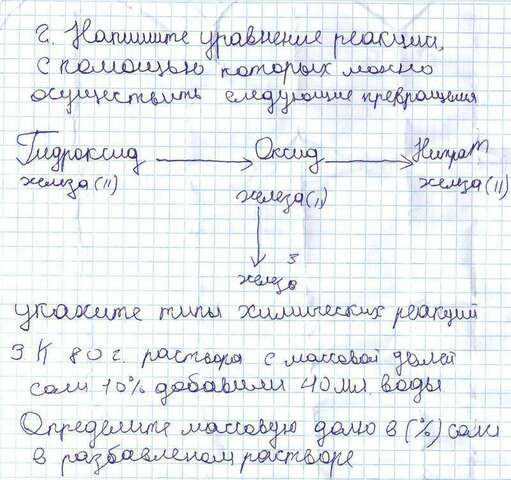 2. Напишите уравнение реакции,
с помощью которых можно
осуществить следующие превращения
Гидроксид → Оксид → Нитрат
железа (II) железа (II) железа (II)
3
железо
укажите типы химических реакций
3 К 80 г. раствора с массовой долей
соли 10% добавили 40 мл. воды
Определите массовую долю в (%) соли
в разбавленом растворе